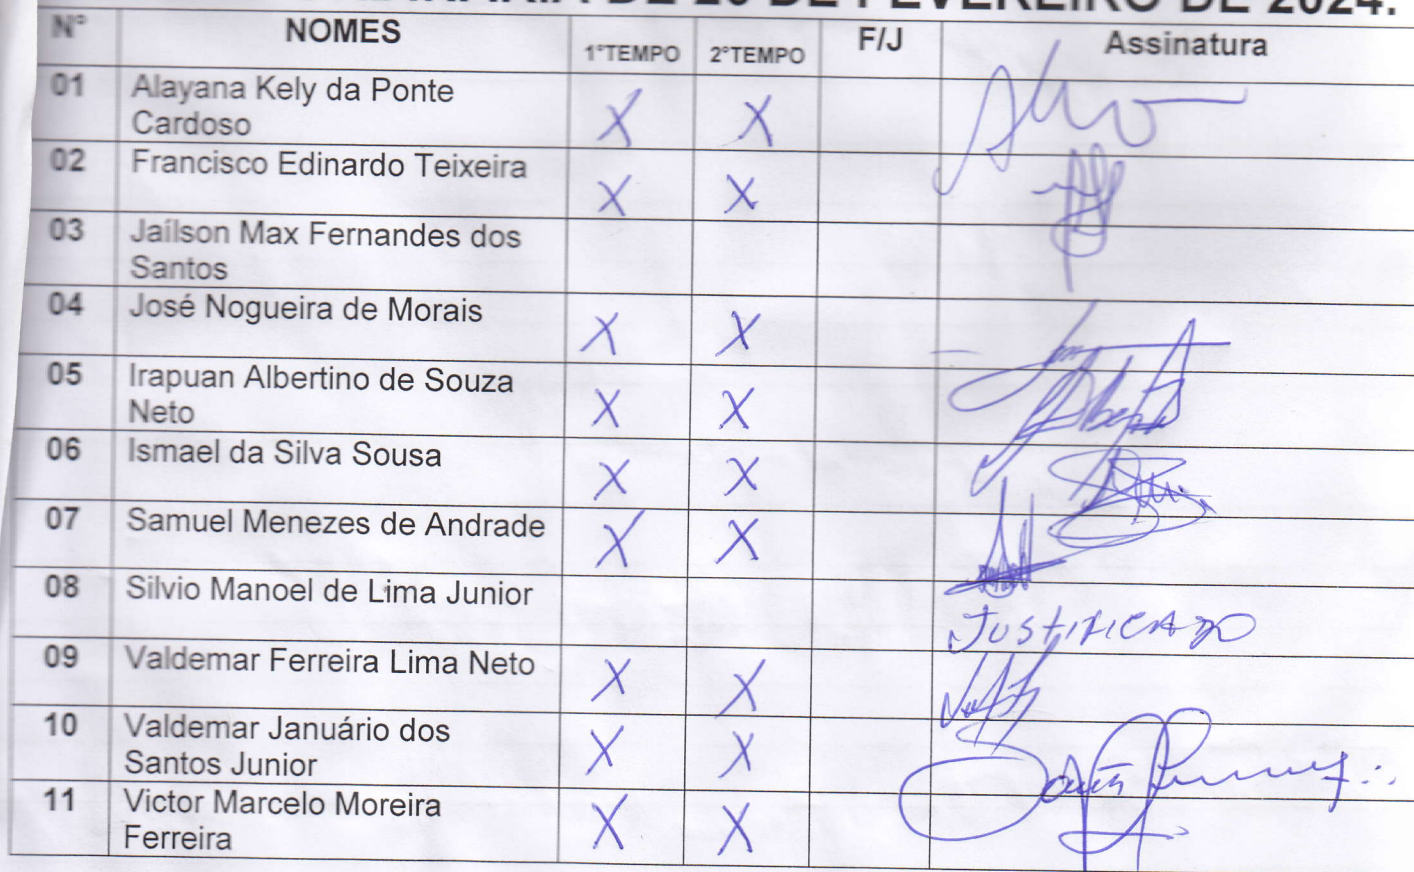 DE FEVEREIRO DE 2024.
N° NOMES 1°TEMPO 2°TEMPO F/J Assinatura
01 Alayana Kely da Ponte
Cardoso X X
02 Francisco Edinardo Teixeira X X
03 Jaílson Max Fernandes dos
Santos
04 José Nogueira de Morais X X
05 Irapuan Albertino de Souza
Neto X X
06 Ismael da Silva Sousa X X
07 Samuel Menezes de Andrade X X
08 Silvio Manoel de Lima Junior JUSTIFICADO
09 Valdemar Ferreira Lima Neto X X
10 Valdemar Januário dos
Santos Junior X X
11 Victor Marcelo Moreira
Ferreira X X